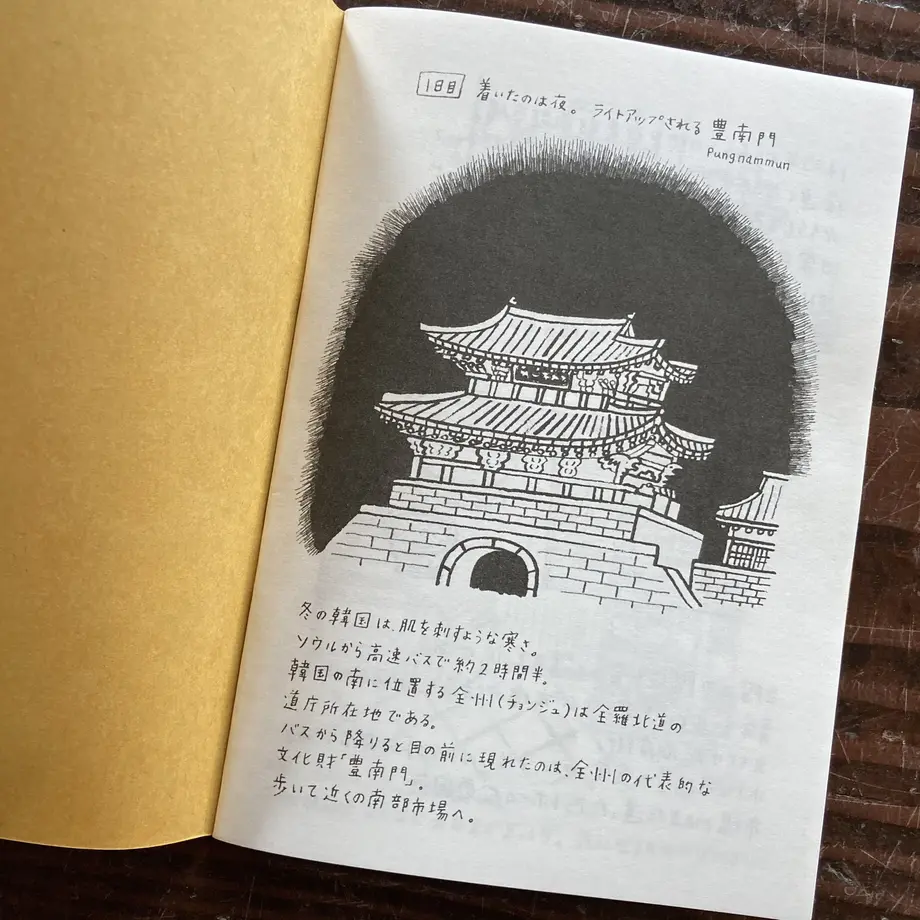 1日目 着いたのは夜。 ライトアップされる 豊南門
Pungnammun
冬の韓国は、肌を刺すような寒さ。
ソウルから高速バスで約2時間半。
韓国の南に位置する全州(チョンジュ)は全羅北道の
道庁所在地である。
バスから降りると目の前に現れたのは、全州の代表的な
文化財「豊南門」。
歩いて近くの南部市場へ。